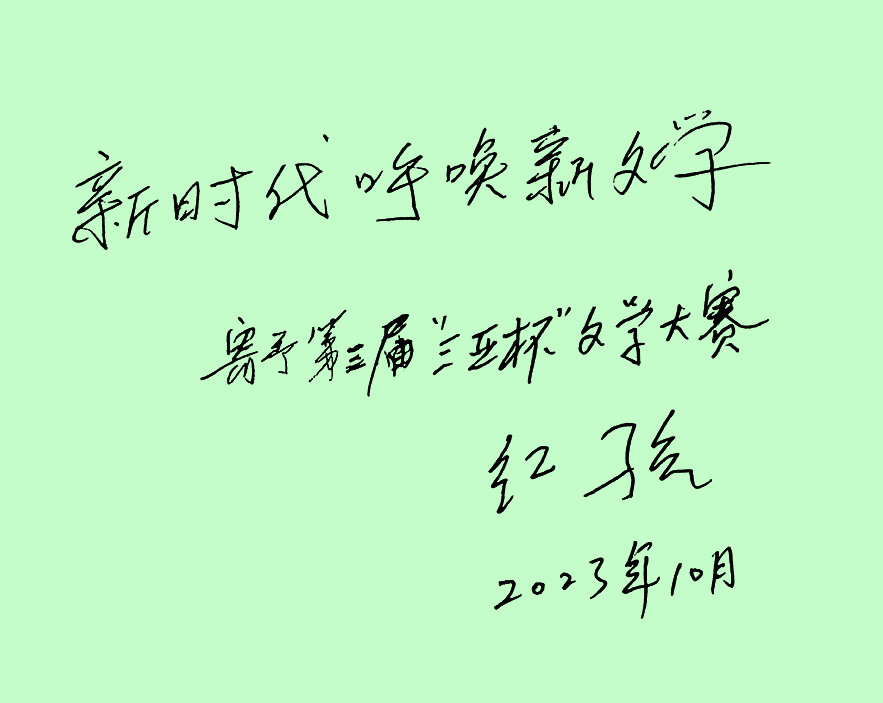 新时代呼唤新文学
寄予第三届“三亚杯”文学大赛
红孩
2023年10月